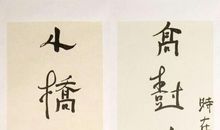 高樹
小橋
時在